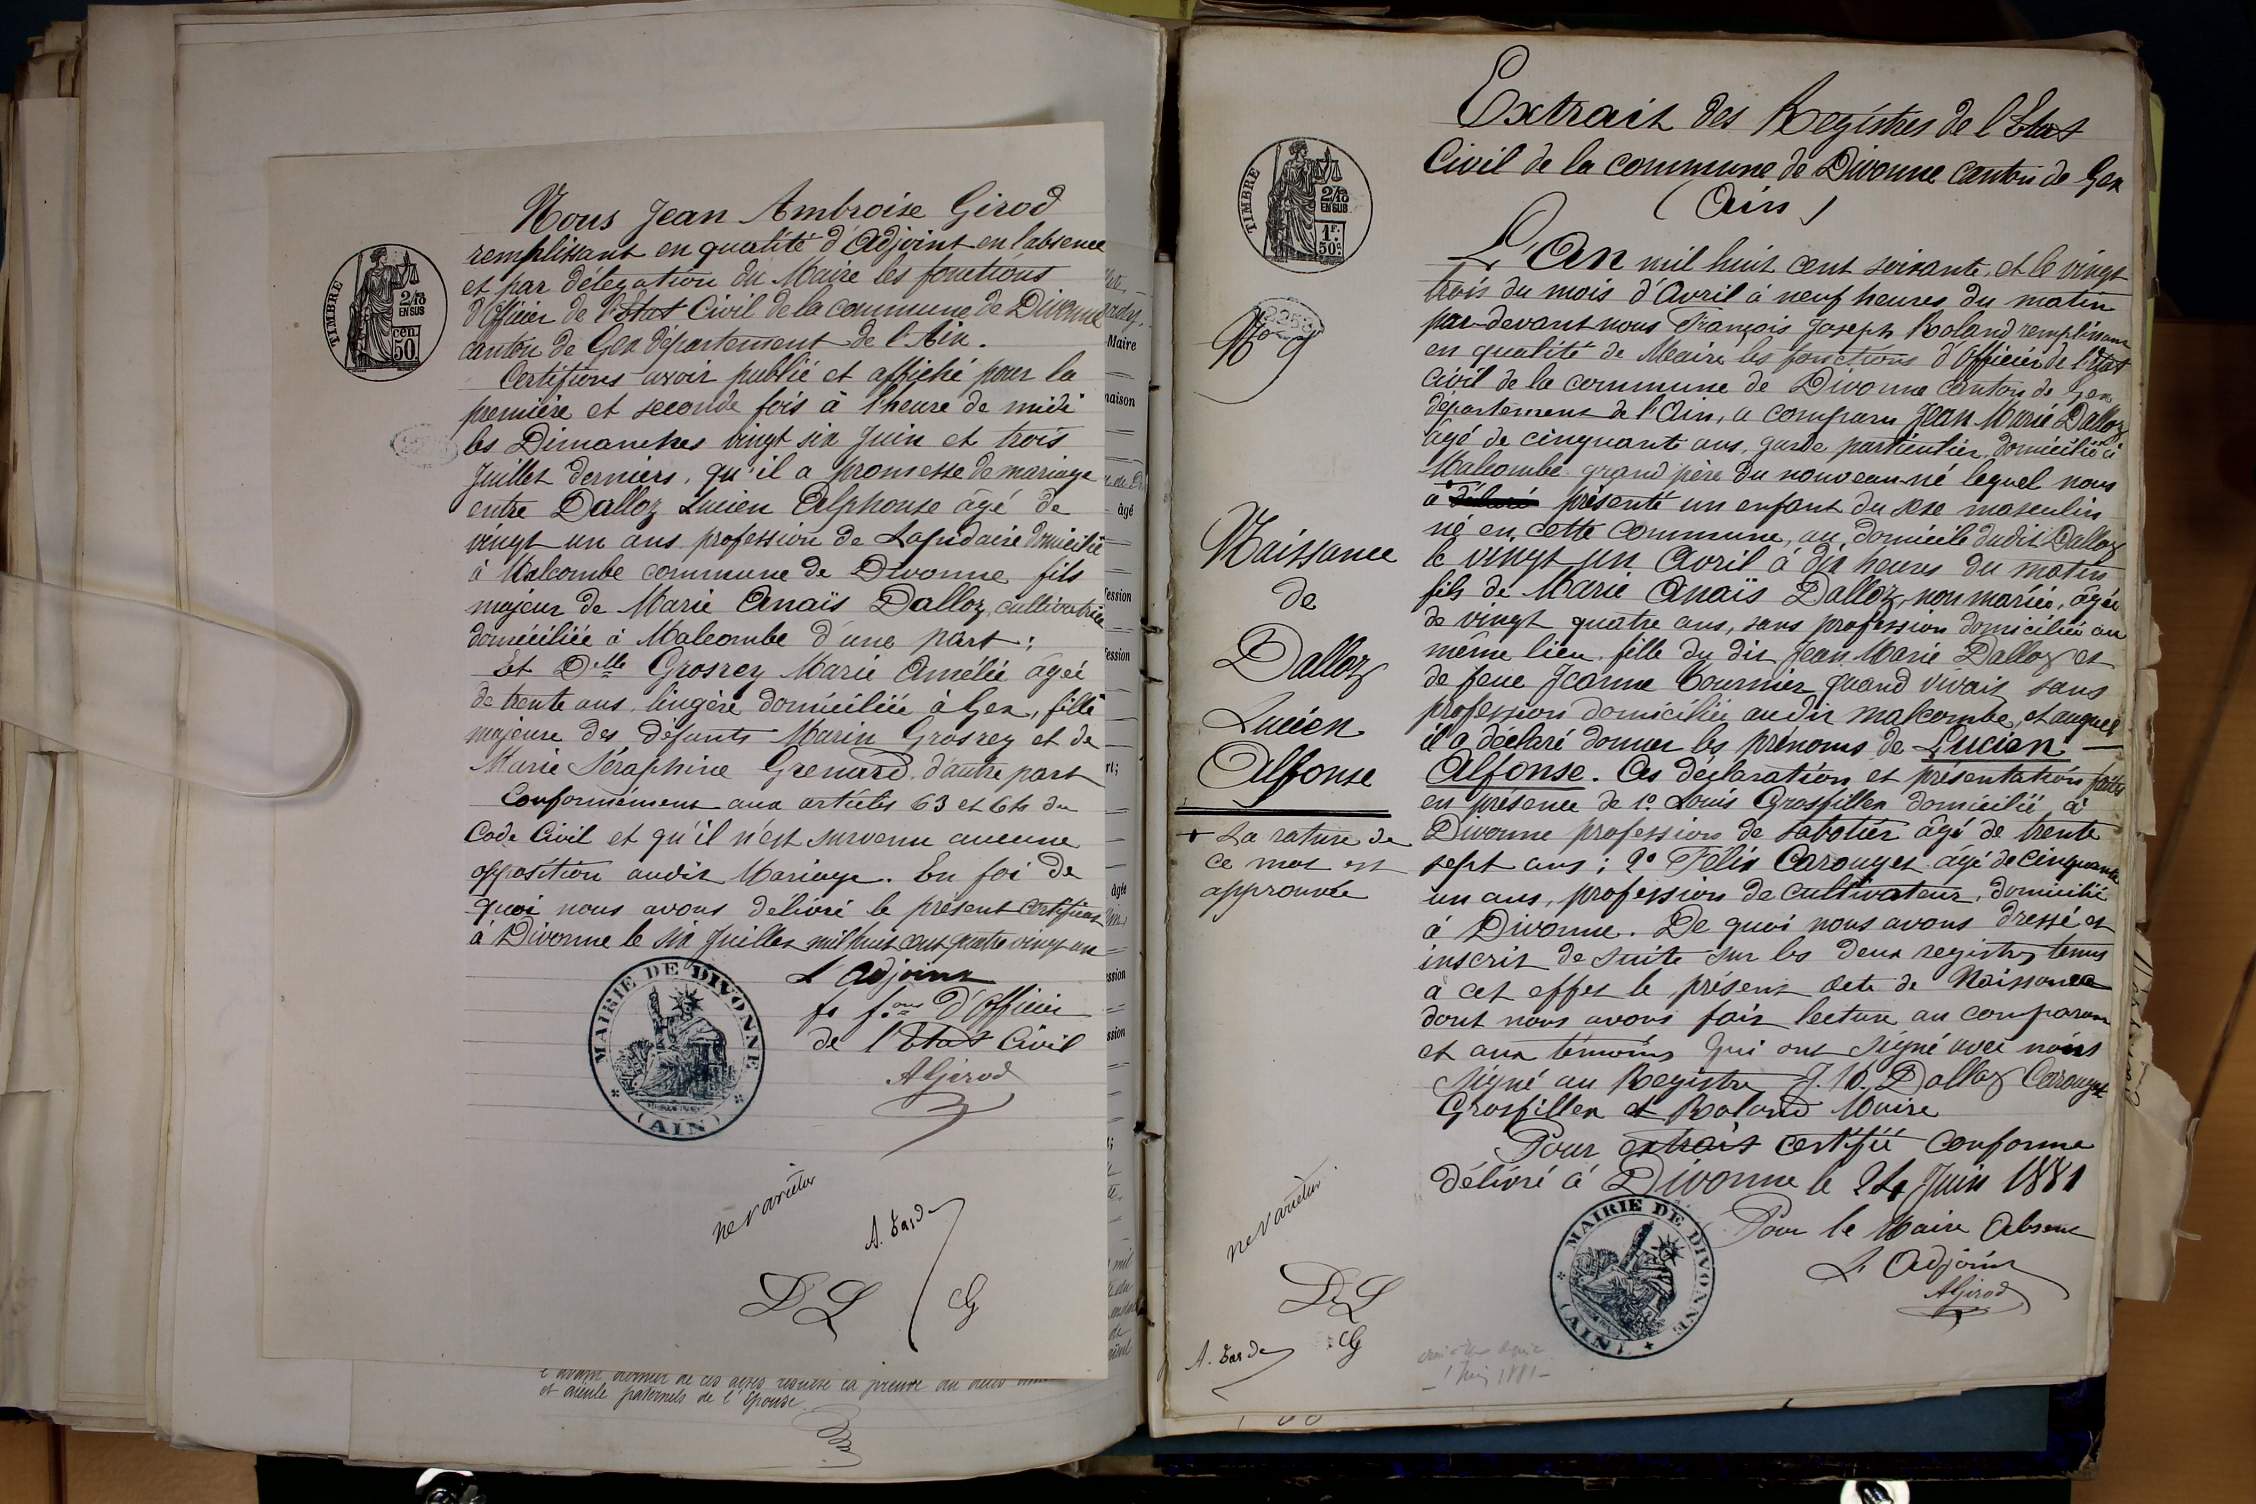 Nous Jean Ambroise Girod
remplissant en qualité d'Adjoint en l'absence
et par délégation du Maire les fonctions
d'Officier de l'Etat Civil de la commune de Divonne
canton de Gex département de l'Ain.
Certifions avoir publié et affiché pour la
première et seconde fois à l'heure de midi
les Dimanches vingt six Juin et trois
Juillet derniers, qu'il a promesse de mariage
entre Dalloz Lucien Alphonse âgé de
vingt un ans profession de Lapidaire domicilié
à Malcombe commune de Divonne fils
majeur de Marie Anaïs Dalloz, cultivatrice
domiciliée à Malcombe d'une part;
Et Delle Grosrey Marie Amélie âgée
de trente ans, lingère domiciliée à Gex, fille
majeure des défunts Marin Grosrey et de
Marie Séraphine Grenard, d'autre part
Conformément aux articles 63 et 64 du
Code Civil et qu'il n'est survenu aucune
opposition audit Mariage. En foi de
quoi nous avons délivré le présent certificat
à Divonne le six Juillet mil huit cent quatre vingt un
L'adjoint
fs f.ons d'Officier
de l'Etat Civil
AGirod
MAIRIE DE DIVONNE
(AIN)
ne varietur
A. Tarde
DL
CG
TIMBRE
2/10
EN SUS
cen
50
Maire
maison
âgé
fession
fession
âgée
ession
ession
et aïeule paternels de l'Epouse.
Extrait des Registres de l'Etat
Civil de la commune de Divonne canton de Gex
(Ain)
L'An mil huit cent soixante, et le vingt
trois du mois d'Avril à neuf heures du matin
par-devant nous François Joseph Roland remplissant
en qualité de Maire les fonctions d'Officier de l'Etat
civil de la commune de Divonne canton de Gex
département de l'Ain, a comparu Jean Marie Dalloz
âgé de cinquante ans, garde particulier, domicilié à
Malcombe grand père du nouveau-né lequel nous
a présenté un enfant du sexe masculin
né en cette commune, au domicile dudit Dalloz
le vingt un Avril à dix heures du matin
fils de Marie Anaïs Dalloz, non mariée, âgée
de vingt quatre ans, sans profession domiciliée au
même lieu fille du dit Jean Marie Dalloz et
de feue Jeanne Tournier quand vivait sans
profession domiciliée audit malcombe, et auquel
il a déclaré donner les prénoms de Lucien
Alfonse. Ces déclaration et présentation faites
en présence de 1º Louis Grosfillex domicilié, à
Divonne profession de sabotier âgé de trente
sept ans; 2º Félix Carouget âgé de cinquante
un ans, profession de cultivateur, domicilié
à Divonne. De quoi nous avons dressé et
inscrit de suite sur les deux registres tenus
à cet effet le présent acte de Naissance
dont nous avons fait lecture au comparant
et aux témoins qui ont signé avec nous
Signé au Registre J.M. Dalloz Carouget
Grosfillex et Roland Maire
Pour extrait certifié conforme
délivré à Divonne le 24 Juin 1881
Pour le Maire Absent
L'Adjoint
AGirod
MAIRIE DE DIVONNE
(AIN)
TIMBRE
2/10
EN SUS
1F.
50c.
Naissance
de
Dalloz
Lucien
Alfonse
+ La rature de
ce mot est
approuvée
ne varietur
DL
A. Tarde
CG